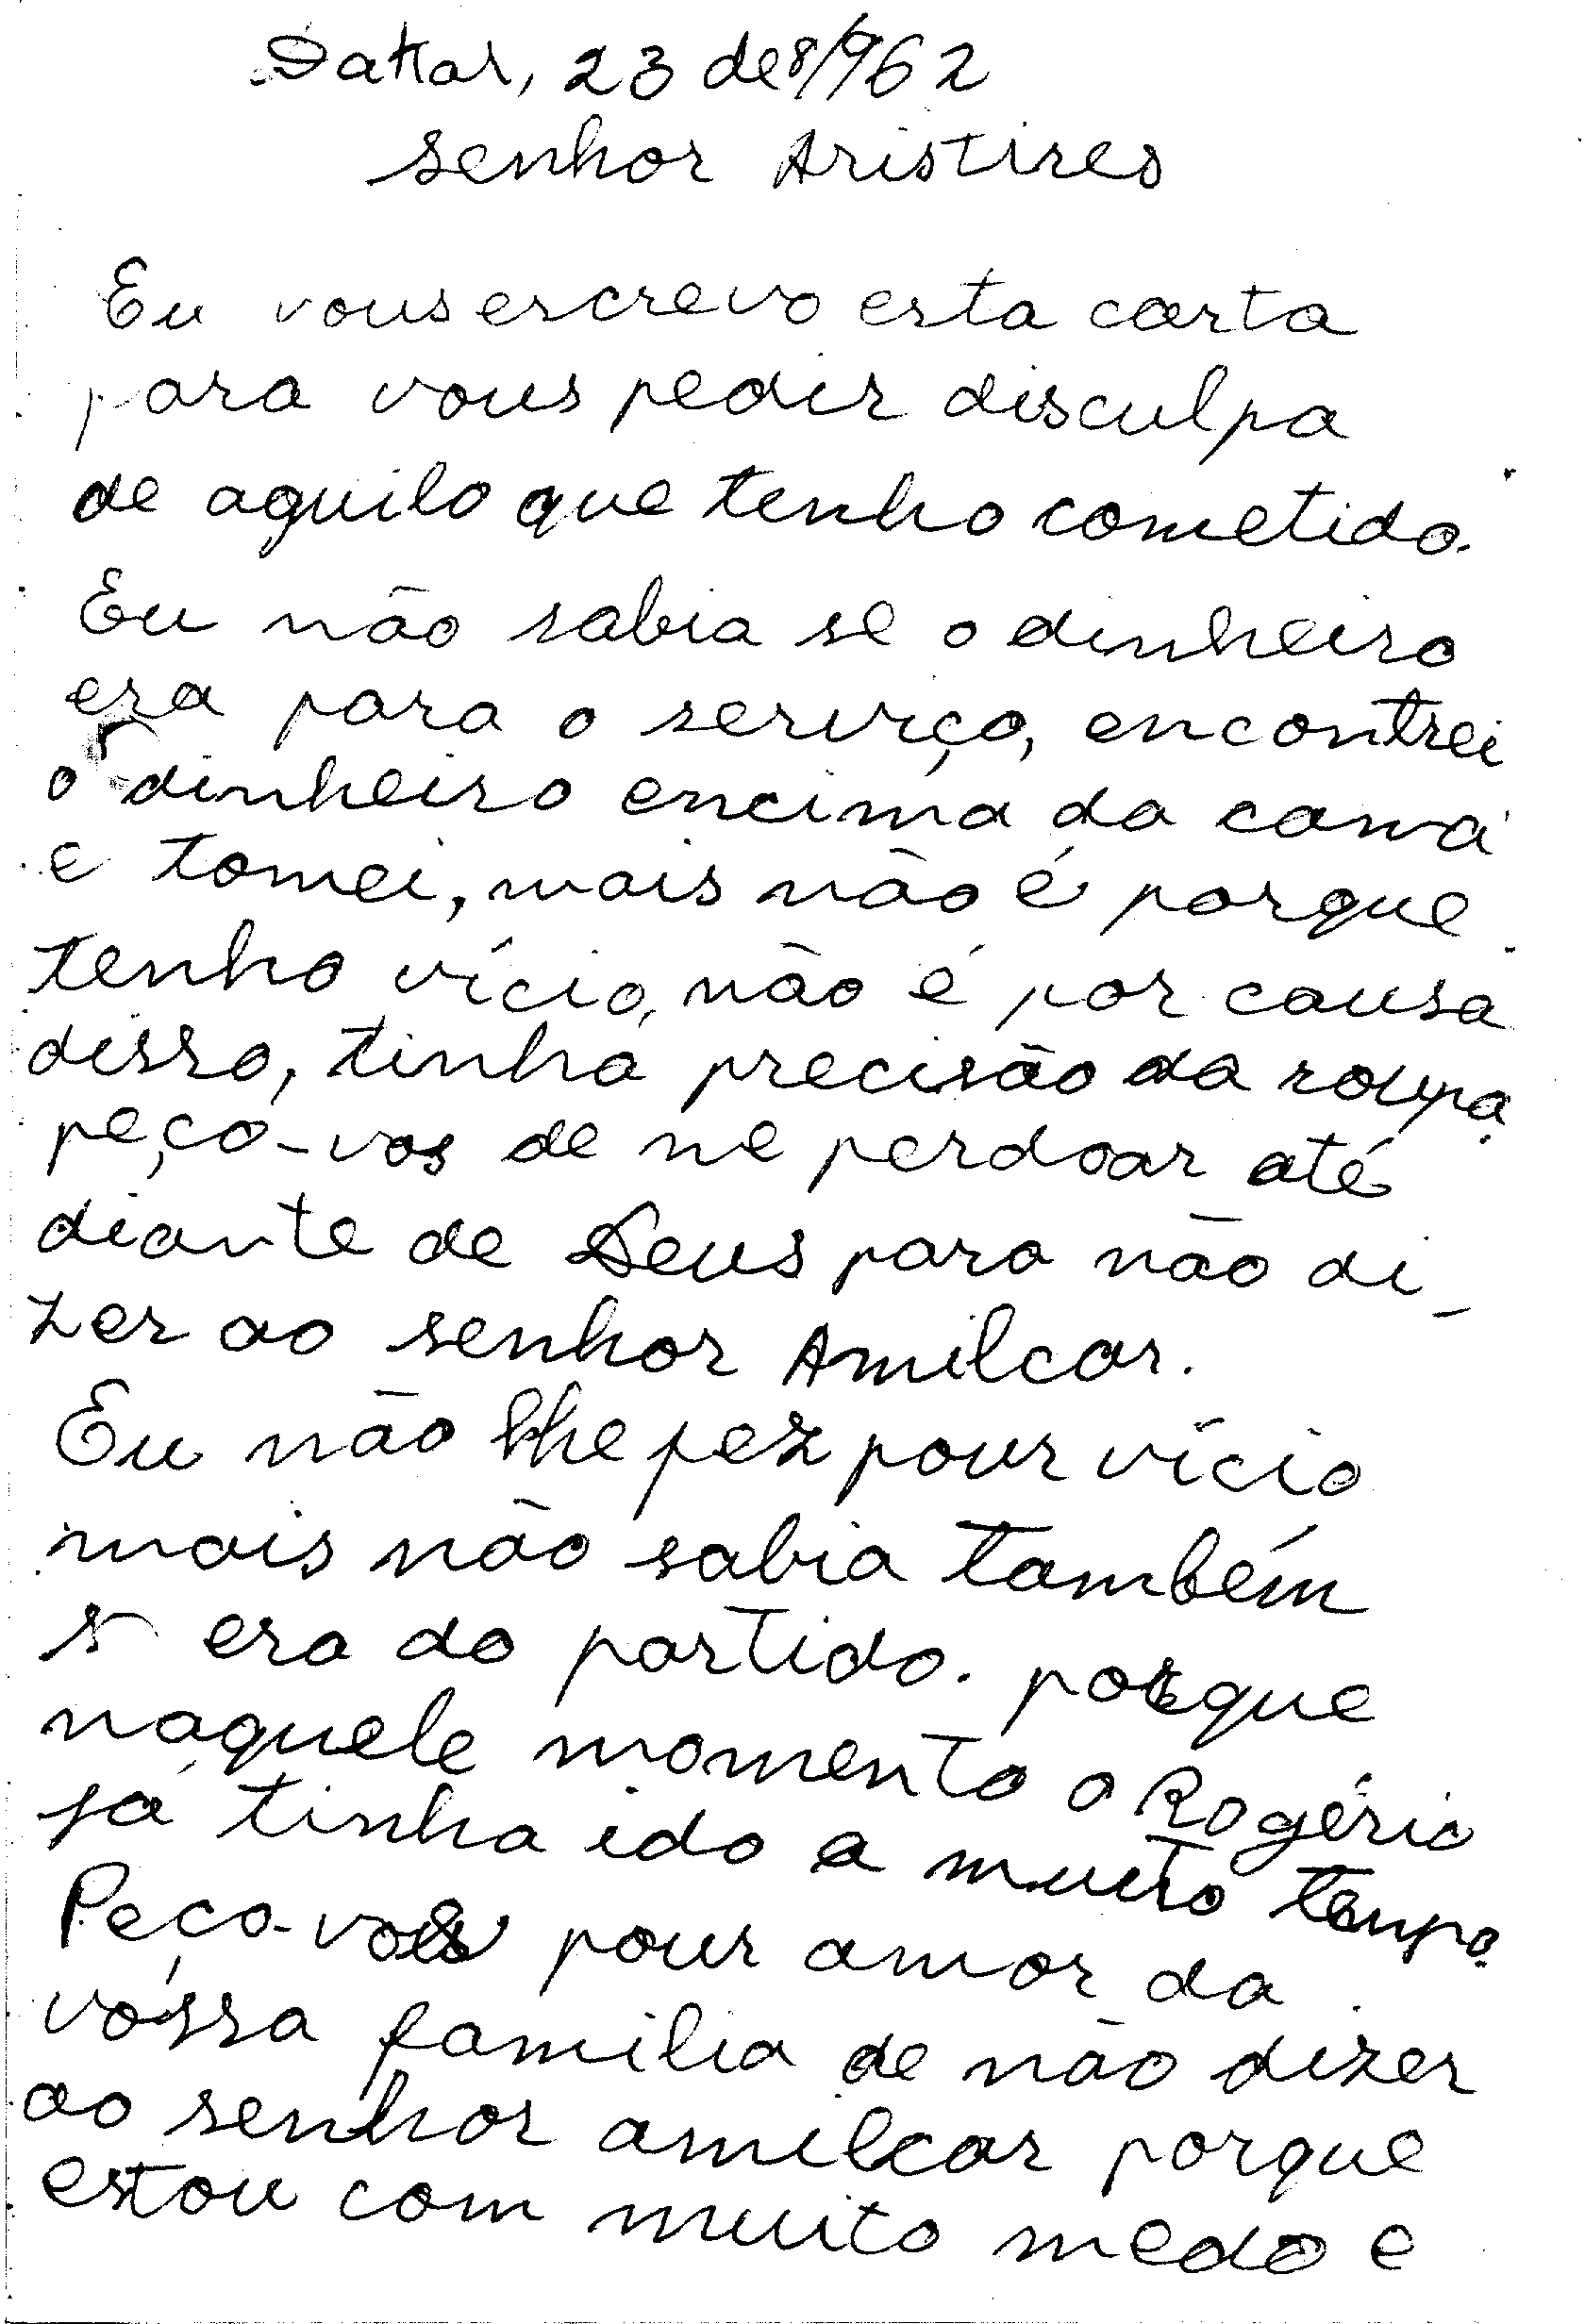 Dakar, 23 de 8/962
Senhor Aristires
Eu vous escrevo esta carta
para vous pedir disculpa
de aquilo que tenho cometido.
Eu não sabia se o dinheiro
era para o serviço, encontrei
o dinheiro encima da cama
e tomei, mais não é porque
tenho vício, não é por causa
disso, tinha precisão da roupa.
peço-vos de me perdoar até
diante de Deus para não di-
zer ao senhor Amilcar.
Eu não lhe fez pour vício
mais não sabia também
s era do partido. porque
naquele momento o Rogério
já tinha ido a muito tempo.
Peço-vos pour amor da
vossa familia de não dizer
ao senhor amilcar porque
estou com muito medo e